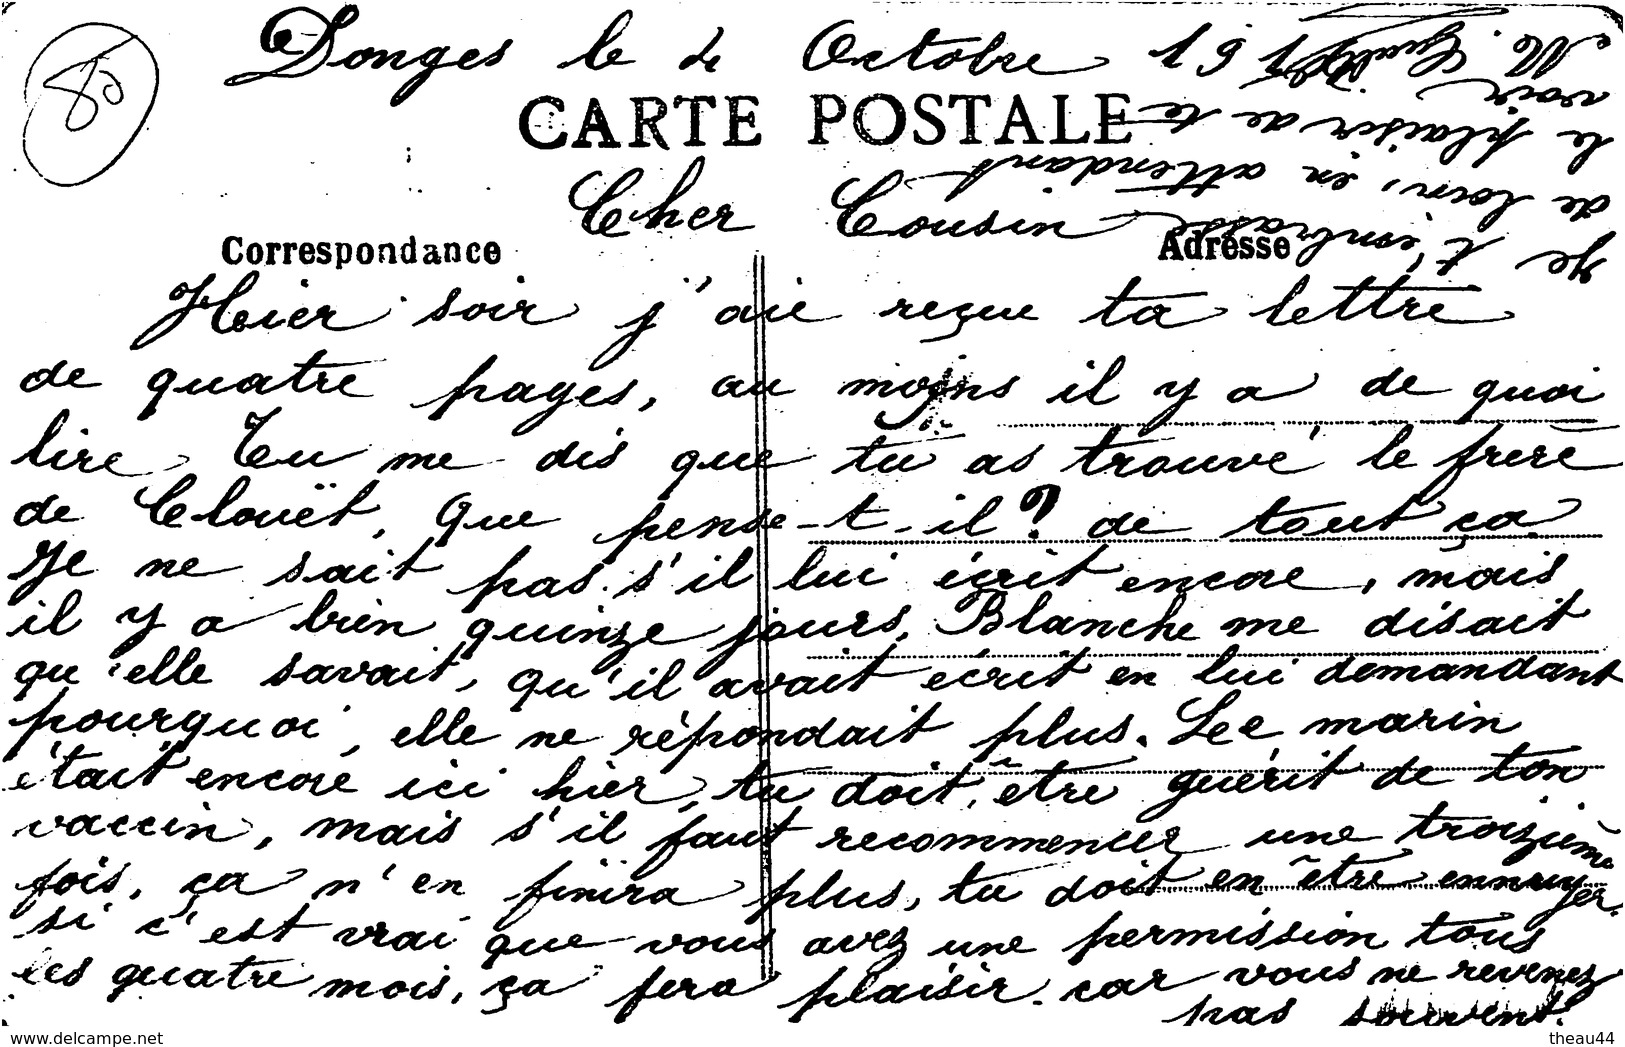 80
Donges le 4 Octobre 191
CARTE POSTALE
Cher Cousin
Correspondance
Adresse
Hier soir j'aie reçue ta lettre
de quatre pages, au moins il y a de quoi
lire, Tu me dis que tu as trouvé le frère
de Clouët, que pense-t-il? de tout ça
Je ne sait pas s'il lui écrit encore, mais
il y a bien quinze jours, Blanche me disait
qu'elle savait, qu'il avait écrit en lui demandant
pourquoi, elle ne répondait plus. Lee marin
était encore ici hier, tu doit être guérit de ton
vaccin, mais s'il faut recommencer une troizième
fois, ça n'en finira plus, tu doit en être ennuyer.
si c'est vrai que vous avez une permission tous
les quatre mois, ça fera plaisir. car vous ne revenez
pas souvent.
Je t'embrasse
de loin, en attendant
le plaisir de te
voir
M.
www.delcampe.net
theau44